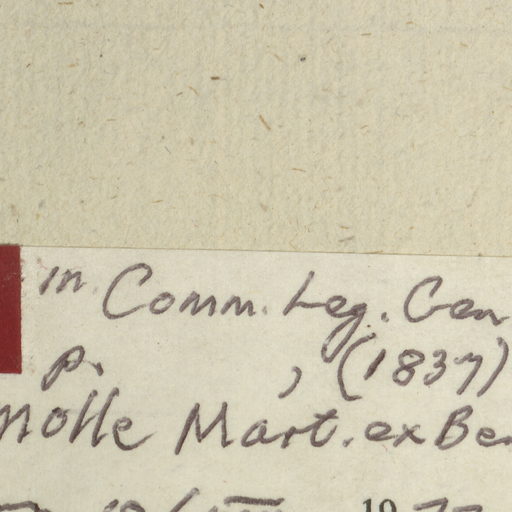 in Comm. Leg. Gen
p. , (1837)
molle Mart. ex Ben
19